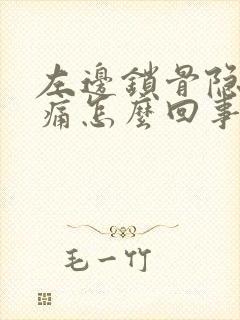 左邊鎖骨隐
痛怎麼回事
毛一竹